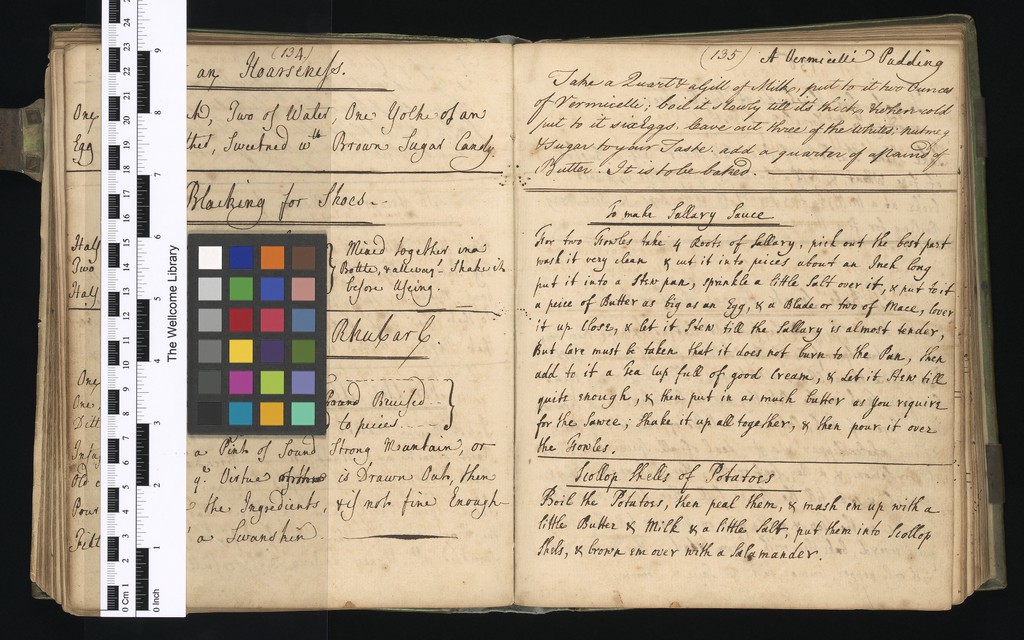 (134)
an Hoarseness.
One
Two of Water, One Yolke of an
Egg
Sweetned wth Brown Sugar Candy.
Blacking for Shoes.
Half
Two
Half
Mixed together in a
Bottle, & allways Shake it
before Useing.
Rhubarb.
One
One
Bruised
to pieces
a Pint of Sound Strong Mountain, or
Old
ye Virtue is Drawn Out, then
Pour
the Ingredients, & if not fine Enough
a Swanskin.
(135) A Vermicelli Pudding
Take a Quart & a Gill of Milk, put to it two Ounces
of Vermicelli; boil it slowly till its thick, & when cold
put to it six Eggs. leave out three of the Whites; nutmeg
& Sugar to your Taste. add a quarter of a Pound of
Butter. It is to be baked.
To make Sallary Sauce
For two Fowles take 4 Roots of Sallary, pick out the best part
wash it very clean & cut it into peices about an Inch long
put it into a Stew pan, sprinkle a little Salt over it, & put to it
a peice of Butter as big as an Egg, & a Blade or two of Mace, cover
it up Close, & let it Stew till the Sallary is almost tender,
But Care must be taken that it does not burn to the Pan, then
add to it a Tea Cup full of good Cream, & Let it Stew till
quite enough, & then put in as much butter as You require
for the Sawce; Shake it up all together, & then pour it over
the Fowles.
Scollop Shells of Potatoes
Boil the Potatoes, then peal them, & mash em up with a
little Butter & Milk & a little Salt, put them into Scollop
Shells, & brown em over with a Salamander.
The Wellcome Library
0 Cm 1 2 3 4 5 6 7 8 9 10 11 12 13 14 15 16 17 18 19 20 21 22 23 24
0 Inch 1 2 3 4 5 6 7 8 9